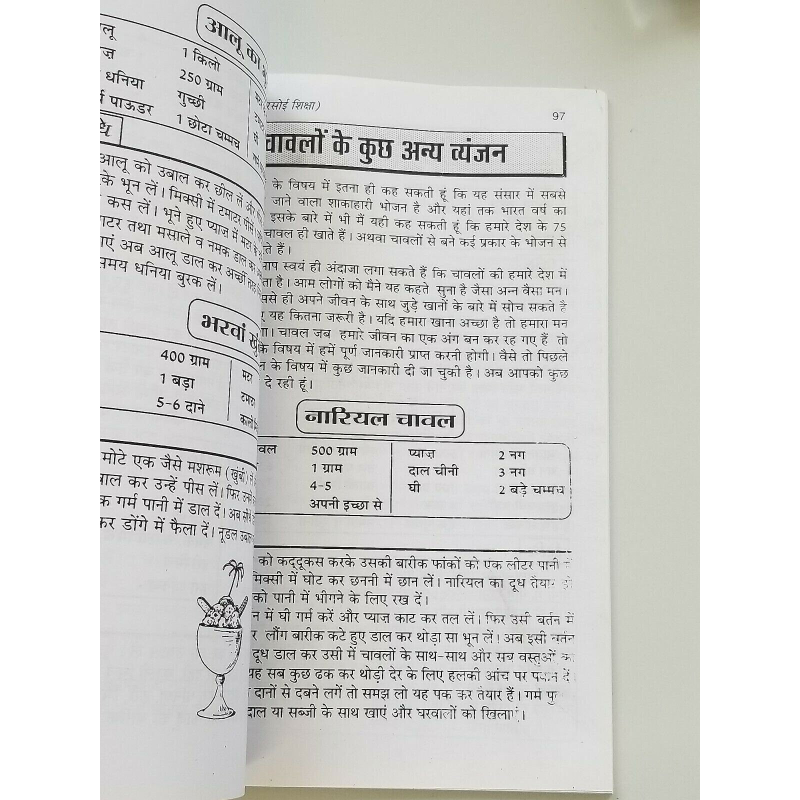 आलू का
लू 1 किलो
ज़ 250 ग्राम
धनिया गुच्छी
पाऊडर 1 छोटा चम्मच
आलू को उबाल कर छील लें और
के भून लें। मिक्सी में टमाटर पीस
कस लें। भूने हुए प्याज में मटर
टर तथा मसाले व नमक डाल कर
एं अब आलू डाल कर अच्छी तरह
समय धनिया बुरक लें।
भरवां
400 ग्राम मटर
1 बड़ा टमाटर
5-6 दाने काली
मोटे एक जैसे मशरूम (खुंबी)
बाल कर उन्हें पीस लें। फिर उनमें
क गर्म पानी में डाल दें। अब सीख
कर डोंगे में फैला दें। नूडल उबाल
रसोई शिक्षा)
97
चावलों के कुछ अन्य व्यंजन
के विषय में इतना ही कह सकती हूं कि यह संसार में सबसे
जाने वाला शाकाहारी भोजन है और यहां तक भारत वर्ष का
इसके बारे में भी मैं यही कह सकती हूं कि हमारे देश के 75
चावल ही खाते हैं। अथवा चावलों से बने कई प्रकार के भोजन से
ते हैं।
आप स्वयं ही अंदाजा लगा सकते हैं कि चावलों की हमारे देश में
ता है। आम लोगों को मैने यह कहते सुना है जैसा अन्न वैसा मन।
से ही अपने जीवन के साथ जुड़े खानों के बारे में सोच सकते है
यह कितना जरूरी है। यदि हमारा खाना अच्छा है तो हमारा मन
गा। चावल जब हमारे जीवन का एक अंग बन कर रह गए हैं तो
के विषय में हमें पूर्ण जानकारी प्राप्त करनी होगी। वैसे तो पिछले
न के विषय में कुछ जानकारी दी जा चुकी है। अब आपको कुछ
दे रही हूं।
नारियल चावल
वल 500 ग्राम प्याज़ 2 नग
1 ग्राम दाल चीनी 3 नग
4-5 घी 2 बड़े चम्मच
अपनी इच्छा से
को कद्दूकस करके उसकी बारीक फांकों को एक लीटर पानी में
मिक्सी में घोट कर छननी में छान लें। नारियल का दूध तैयार हो
को पानी में भीगने के लिए रख दें।
न में घी गर्म करें और प्याज काट कर तल लें। फिर उसी बर्तन में
र लौंग बारीक कटे हुए डाल कर थोड़ा सा भून लें। अब इसी बर्तन
दूध डाल कर उसी में चावलों के साथ-साथ और सब वस्तुओं का
यह सब कुछ ढक कर थोड़ी देर के लिए हलकी आंच पर पकने दें।
दानों से दबने लगें तो समझ लो यह पक कर तैयार हैं। गर्म
दाल या सब्जी के साथ खाएं और घरवालों को खिलाएं।